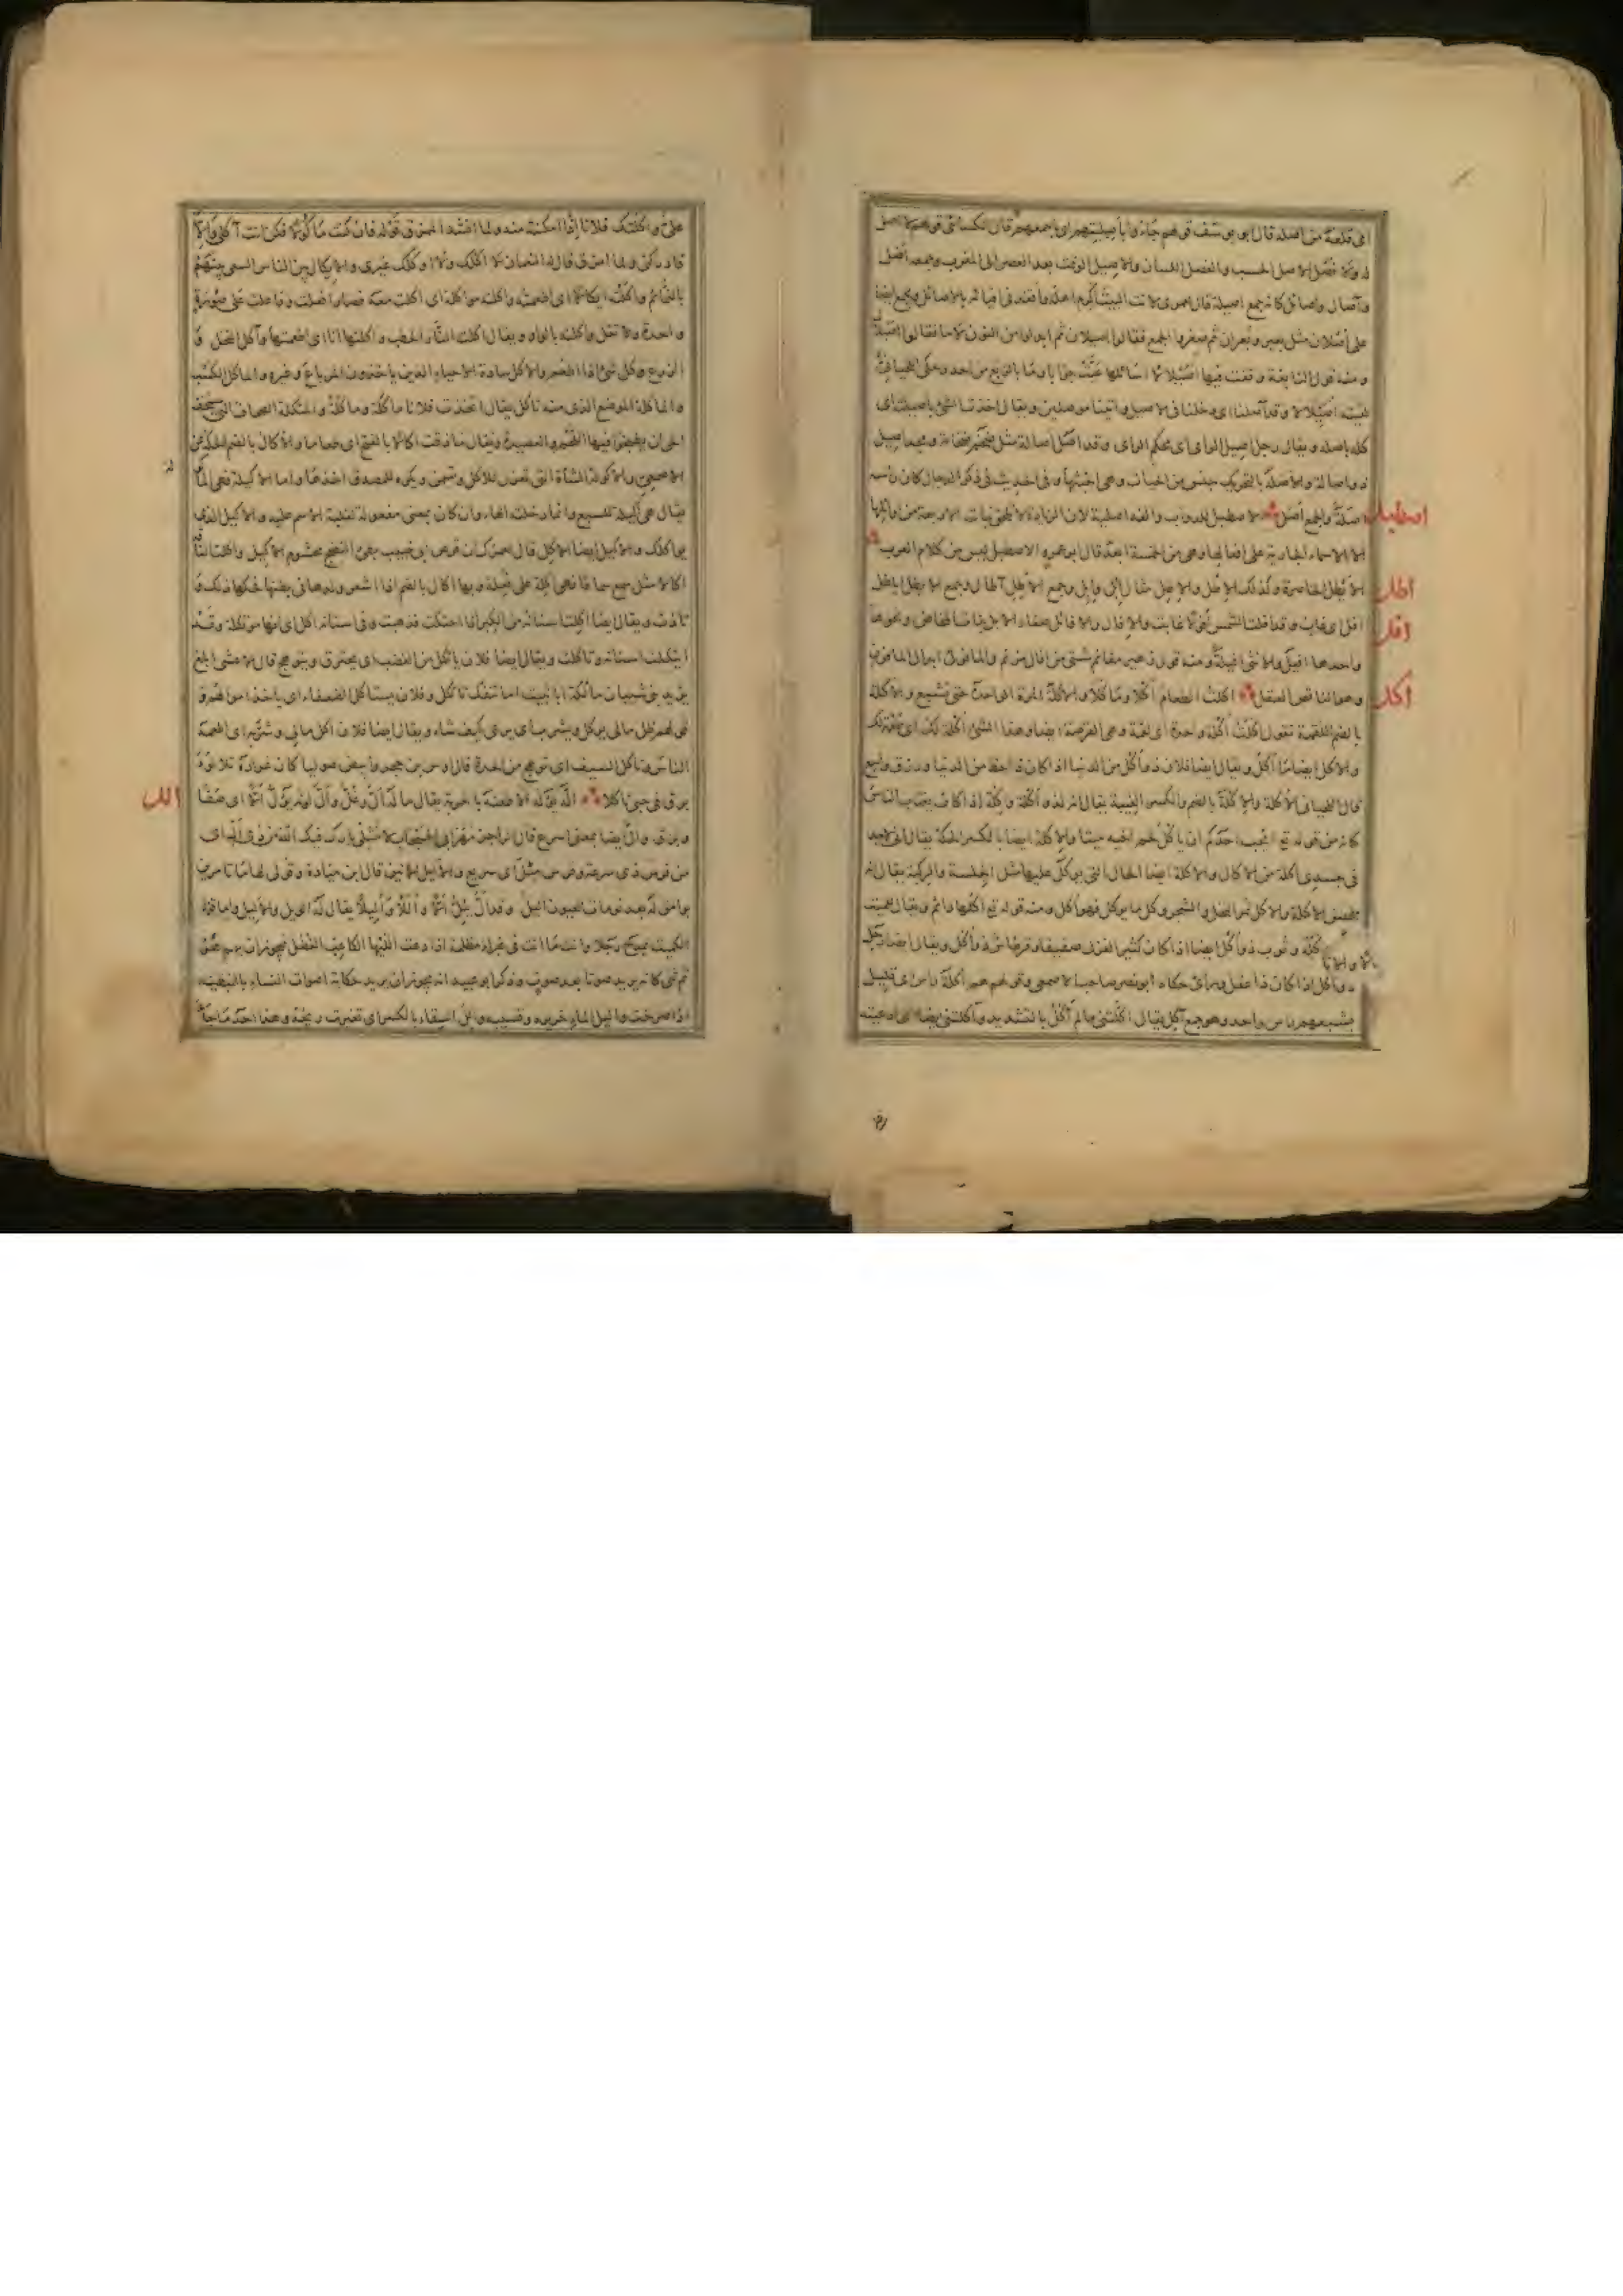 اي قلعه من اصله قال ابو يوسف قولهم جاءوا بأصيلتهم اي باجمعهم قال الكسائي قولهم لا اصل
له ولا فصل الاصل الحسب والفصل اللسان والاصيل الوقت بعد العصر الى المغرب وجمعه أصل
وآصال واصائل كانه جمع اصيلة قال لعمري لانت البيت أكرم اهله واقعد في افيائه بالاصائل ويجمع ايضا
على أصلان مثل بعير وبعران ثم صغروا الجمع فقالوا اصيلان ثم ابدلوا من النون لاما فقالوا اصيلال
ومنه قول النابغة وقفت فيها اصيلالا اسائلها عيّت جوابا وما بالربع من احد وحكى اللحياني
لقيته اصيلالا وقد آصلنا اي دخلنا في الاصيل واتينا موصلين ويقال اخذت الشئ باصيلته اي
كله باصله ويقال رجل اصيل الراى اى محكم الراى وقد اصل اصالة مثل ضخم ضخامة ومجد اصيل
ذو اصالة والاصلة بالتحريك جنس من الحيات وهي اخبثها وفي الحديث في ذكر الدجال كان راسه
اصطبل
اصلة والجمع أصل الاصطبل للدواب والفه اصلية لان الزيادة لا تلحق بنات الاربعة من اوائلها
الا الاسماء الجارية على افعالها وهي من الخمسة ابعد قال ابو عمرو الاصطبل ليس من كلام العرب
اطل
الأيطل الخاصرة وكذلك الإطل والإطِل مثال إبل وإبِل وجمع الإطل آطال وجمع الايطل اياطل
افل
افل اي غاب وقد افلت الشمس تأفل غابت والافال والافائل صغار الابل بنات المخاض ونحوها
واحدها افيل والانثى افيلة ومنه قول زهير مغانم شتى من افال مزنم والمأفول ابدال المأفون
اكل
وهو الناقص العقل اكلت الطعام أكلا ومأكلا والأكلة المرة الواحدة حتى تشبع والاكلة
بالضم اللقمة تقول اكلت أكلة واحدة اى لقمة وهي القرصة ايضا وهذا الشئ أكلة لك اى طعمة لك
والاكل ايضا ما أكل ويقال ايضا فلان ذو أكل من الدنيا اذا كان ذا حظ من الدنيا ورزق واسع
قال اللحياني الأكلة والإكلة بالضم والكسر الغيبة يقال انه لذو أكلة وإكلة إذا كان يغتاب الناس
كانه من قوله تع ايحب احدكم ان ياكل لحم اخيه ميتا والإكلة ايضا بالكسر الحكة يقال اني لاجد
في جسدى اكلة من الاكال والاكلة ايضا الحال التي يوكل عليها مثل الجلسة والركبة يقال انه
لحسن الاكلة والاكل ثمر النخل والشجر وكل ما يوكل فهو أكل ومنه قوله تع اكلها دائم ويقال للميت
أكله وثوب ذو أكل ايضا اذا كان كثير الغزل صفيقا وقرطاس ذو أكل ويقال ايضا رجل
ذو أكل اذا كان ذا عقل وراى حكاه ابو نصر صاحب الاصمعي وقولهم هم أكلة راس اى قليل
يشبعهم راس واحد وهو جمع آكل يقال اكّلتني ما لم آكل بالتشديد وآكلتني ايضا اى ادعيته
على وآكلتك فلانا إذا امكنته منه ولما انشد الممزق قوله فان كنت مأكولا فكن انت آكلى وإلا
فادركني ولما امزق قال له النعمان لا آكلك ولا اوكلك غيرى والايكال بين الناس السعى بينهم
بالنمائم وآكلت ايكالا اى اطعمته وآكلته مواكلة اى اكلت معه فصار افعلت وفاعلت على صورة
واحدة ولا تقل واكلته بالواو ويقال اكلت النار الحطب وآكلتها انا اى اطعمتها وآكل النخل و
الزرع وكل شئ اذا اطعم والآكال سادة الاحياء الذين ياخذون المرباع وغيره والمأكل الكسب
والمأكلة الموضع الذى منه تاكل يقال اتخذت فلانا مأكلة ومأكلة والمئكلة الصحاف التي يستخف
الحى ان يطبخوا فيها اللحم والعصيدة ويقال ما ذقت اكالا بالفتح اى طعاما والاكال بالضم الحكة عن
الاصمعي والاكولة الشاة التي تعزل للاكل وتسمن ويكره للمصدق اخذها واما الاكيلة فهي المأكولة
يقال هي اكيلة السبع وانما دخلته الهاء وان كان بمعنى مفعولة لغلبة الاسم عليه والاكيل الذى
يواكلك والاكيل ايضا الاكل قال لعمرك ان قرص ابي خبيب بطئ النضج محشوم الاكيل واكلت الناقة
اكالا مثل سمع سماعا فهي اكلة على فعلة وبها اكال بالضم اذا اشعر ولدها في بطنها فحكها ذلك و
تأذت ويقال ايضا اكلت اسنانه من الكبر اذا احتكت فذهبت وفي اسنانه اكل اى انها مؤتكلة وقد
ائتكلت اسنانه وتأكلت ويقال ايضا فلان يأتكل من الغضب اى يحترق ويتوهج قال الاعشى ابلغ
يزيد بني شيبان مألكة ابا ثبيت اما تنفك تأتكل وفلان يستاكل الضعفاء اى ياخذ اموالهم و
قولهم ظل مالى يوكل ويشرب اى يرعى كيف شاء ويقال ايضا فلان اكل مالى وشربه اى اطعمه
الناس وتأكل السيف اى توهج من الحدة قال اوس بن حجر وابيض صوليا كان غراره تلألؤ
الل
برق في حبى تأكلا الّه يؤلّه الا طعنه بالحربة يقال ما له أل وغل وأل لونه يؤل ألا اى صفا
وبرق وأل ايضا بمعنى اسرع قال الراجز مهر ابى الحبحاب لا تشلى بارك فيك الله من ذى أل اى
من فرس ذى سرعة وفرس مئل اى سريع والأليل الانين قال ابن ميادة وقولى لها ما تأمرين
بوامق له بعد نومات العيون اليل وقد أل يئل ألا وأللا وأليلا يقال له الويل والأليل واما قول
الكميت يمدح رجلا وانت ما انت في غبراء مظلمة اذا دعت ألليها الكاعب الفضل فيجوز ان يريد الألل
ثم ثنى كانه يريد صوتا بعد صوت وذكر ابو عبيد انه يجوز ان يريد حكاية اصوات النساء بالنبطية
اذا صرخن واليل الماء خريره وقسيبه وألل السقاء بالكسر اى تغيرت ريحه وهذا احد ما جاء